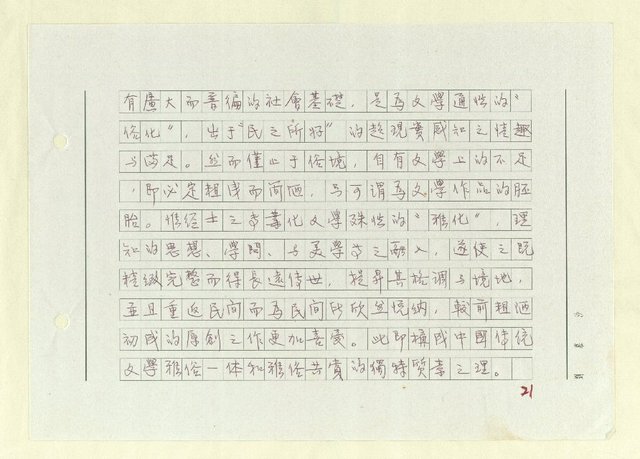 有廣大而普徧的社會基礎，是為文學通性的“
俗化”，出于“民之所好”的超現實感知之情趣
与滿足。然而僅止于俗境，自有文學上的不足
，即必定粗淺而簡陋，与可謂為文學作品的胚
胎。惟經士之专業化文學殊性的“雅化”，理
知的思想、學問、与美學之融入，遂使之既
精緻完整而得長遠傳世，提昇其格調与境地，
並且重返民间而為民间所欣然境納，較前粗陋
初成的原創之作更加喜愛。此即構成中國傳統
文學雅俗一体和雅俗共賞的獨特質素之理。
21